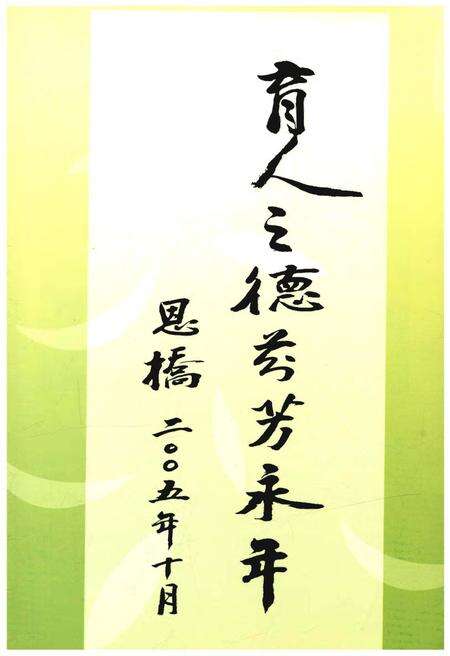 育人之德芬芳永年
恩橋
二〇〇五年十月